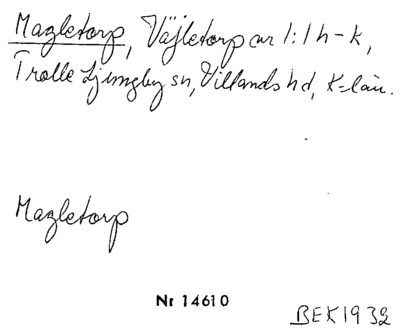 Magletorp, Väjletorp ar 1:1 h-k,
Trolle Ljungby sn, Villands hd, K-län.
Magletorp
Nr 14610
BEK 1932